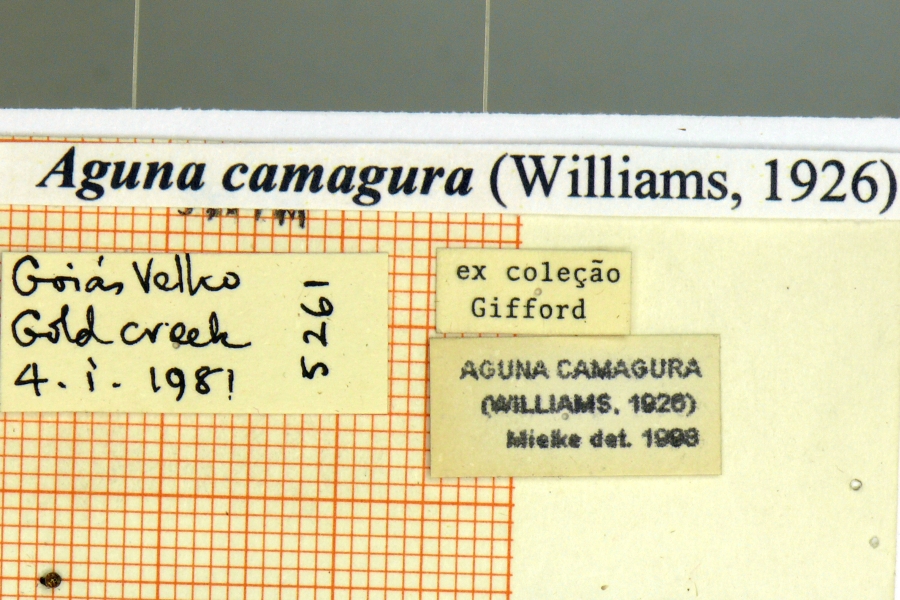 Aguna camagura (Williams, 1926)
Goiás Velho
Gold creek
4. i. 1981
5261
ex coleção
Gifford
AGUNA CAMAGURA
(WILLIAMS, 1926)
Mielke det.